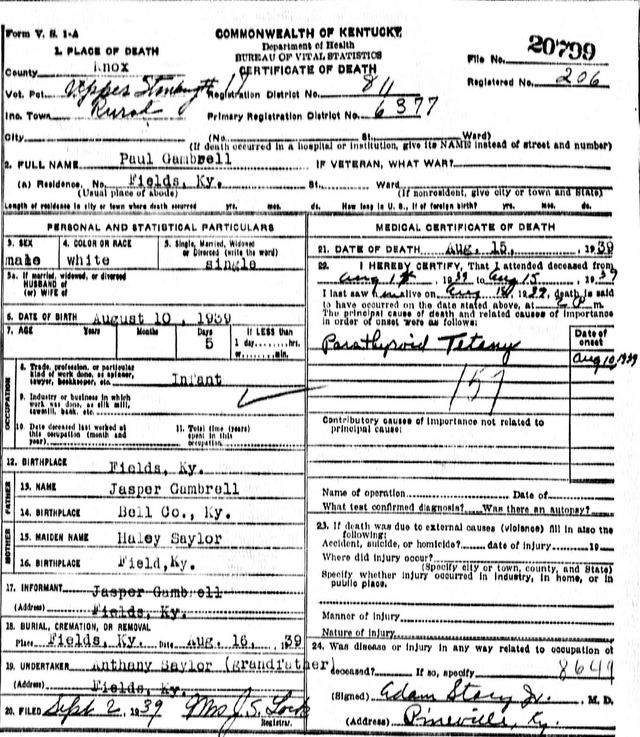 Form V. S. 1-A
COMMONWEALTH OF KENTUCKY
Department of Health
BUREAU OF VITAL STATISTICS
CERTIFICATE OF DEATH
File No. 20799
Registered No. 206
1. PLACE OF DEATH
County Knox
Vot. Pct. Upper
Registration District No. 811
Inc. Town Rural
Primary Registration District No. 6377
City (No. St. Ward)
(If death occurred in a hospital or institution, give its NAME instead of street and number)
2. FULL NAME Paul Gambrell IF VETERAN, WHAT WAR?
(a) Residence. No. Fields, Ky. St. Ward
(Usual place of abode) (If nonresident, give city or town and State)
Length of residence in city or town where death occurred yrs. mos. ds. How long in U. S., if of foreign birth? yrs. mos. ds.
PERSONAL AND STATISTICAL PARTICULARS
3. SEX male
4. COLOR OR RACE white
5. Single, Married, Widowed or Divorced (write the word) single
5a. If married, widowed, or divorced
HUSBAND of
(or) WIFE of
6. DATE OF BIRTH August 10, 1939
7. AGE Years Months Days 5 If LESS than 1 day......hrs. or......min.
OCCUPATION
8. Trade, profession, or particular kind of work done, as spinner, sawyer, bookkeeper, etc. Infant
9. Industry or business in which work was done, as silk mill, sawmill, bank, etc.
10. Date deceased last worked at this occupation (month and year)
11. Total time (years) spent in this occupation
12. BIRTHPLACE Fields, Ky.
FATHER
13. NAME Jasper Gambrell
14. BIRTHPLACE Bell Co., Ky.
MOTHER
15. MAIDEN NAME Haley Saylor
16. BIRTHPLACE Field, Ky.
17. INFORMANT Jasper Gambrell
(Address) Fields, Ky.
18. BURIAL, CREMATION, OR REMOVAL
Place Fields, Ky. Date Aug. 16, 39
19. UNDERTAKER Anthany Saylor (grandfather)
(Address) Fields, Ky.
20. FILED Sept 2, 1939 Mrs J. S. Lock
Registrar.
MEDICAL CERTIFICATE OF DEATH
21. DATE OF DEATH Aug. 15, 1939
22. I HEREBY CERTIFY, That I attended deceased from
Aug 1939 to Aug 15, 1939
I last saw him alive on Aug 1939, death is said
to have occurred on the date stated above, at
The principal cause of death and related causes of importance
in order of onset were as follows:
Date of onset
Parathyroid Tetany Aug 10, 1939
157
Contributory causes of importance not related to
principal cause:
Name of operation Date of
What test confirmed diagnosis? Was there an autopsy?
23. If death was due to external causes (violence) fill in also the
following:
Accident, suicide, or homicide? date of injury 19
Where did injury occur?
(Specify city or town, county, and State)
Specify whether injury occurred in industry, in home, or in
public place.
Manner of injury
Nature of injury
24. Was disease or injury in any way related to occupation of
deceased? If so, specify
(Signed) Adam Stacy Jr. M. D.
(Address) Pineville, Ky.